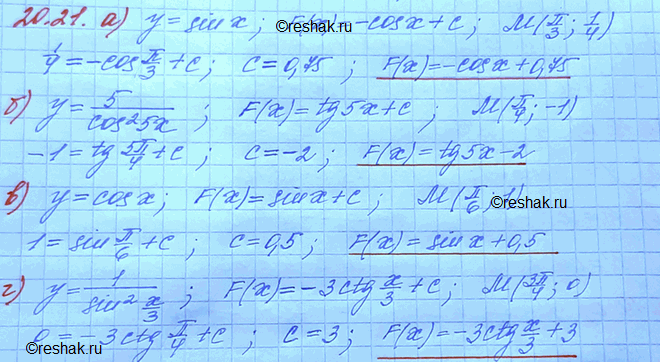 20.21. а) y = sin x ; F(x) = -cos x + c ; M(π/3 ; 1/4)
1/4 = -cos π/3 + c ; c = 0,75 ; F(x) = -cos x + 0,75
б) y = 5/cos²5x ; F(x) = tg 5x + c ; M(π/4 ; -1)
-1 = tg 5π/4 + c ; c = -2 ; F(x) = tg 5x - 2
в) y = cos x ; F(x) = sin x + c ; M(π/6 ; 1)
©reshak.ru ©reshak.ru
1 = sin π/6 + c ; c = 0,5 ; F(x) = sin x + 0,5
г) y = 1/sin² x/3 ; F(x) = -3ctg x/3 + c ; M(3π/4 ; 0)
0 = -3ctg π/4 + c ; c = 3 ; F(x) = -3ctg x/3 + 3
©reshak.ru ©reshak.ru